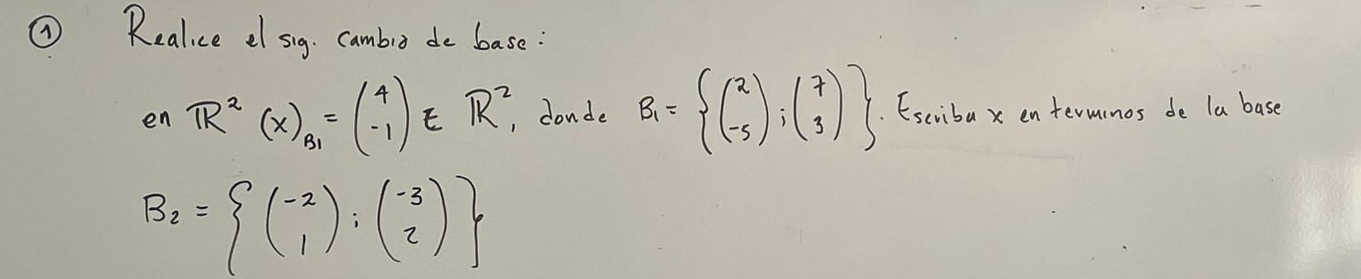 ① Realice el sig. cambio de base:
en ℝ² (x)_B₁ = (4 -1) ∈ ℝ², donde B₁ = {(2 -5); (7 3)}. Escriba x en terminos de la base
B₂ = {(-2 1); (-3 2)}